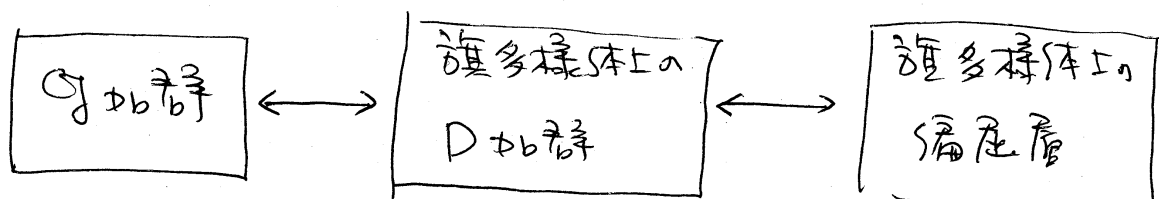 𝔤 加群
旗多様体上の
D 加群
旗多様体上の
偏屈層